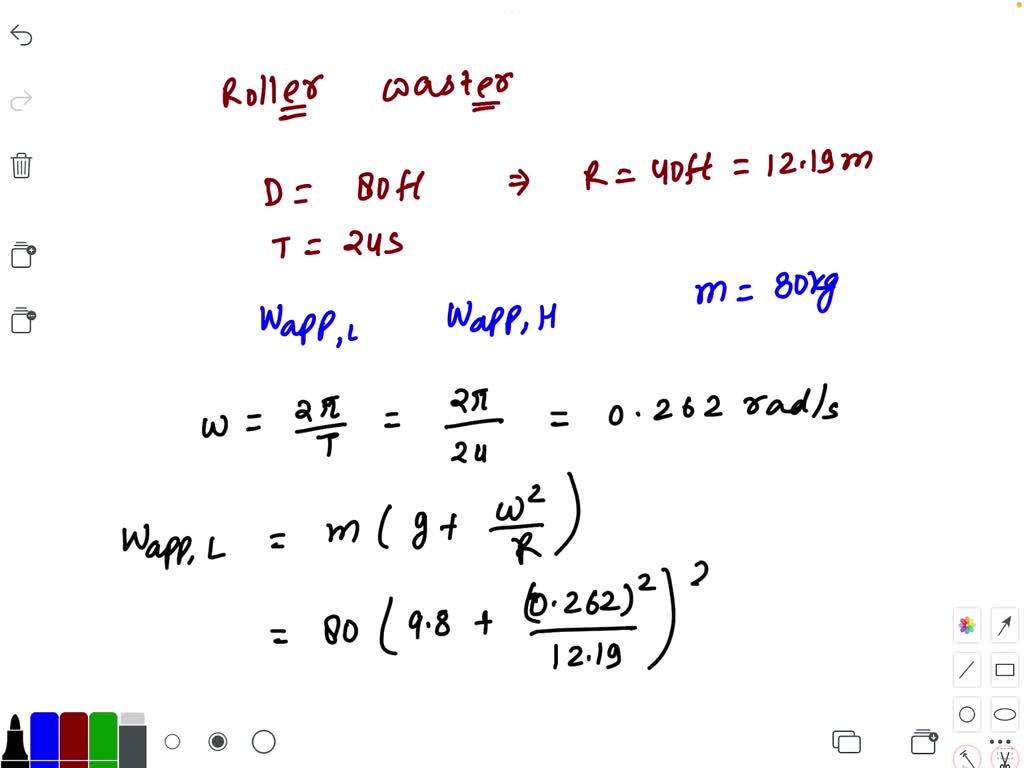 Roller coaster
D = 80ft ⇒ R = 40ft = 12.19m
T = 24s
Wapp,L Wapp,H m = 80kg
ω = 2π/T = 2π/24 = 0.262 rad/s
Wapp,L = m(g + ω²/R)
= 80(9.8 + (0.262)²/12.19)²